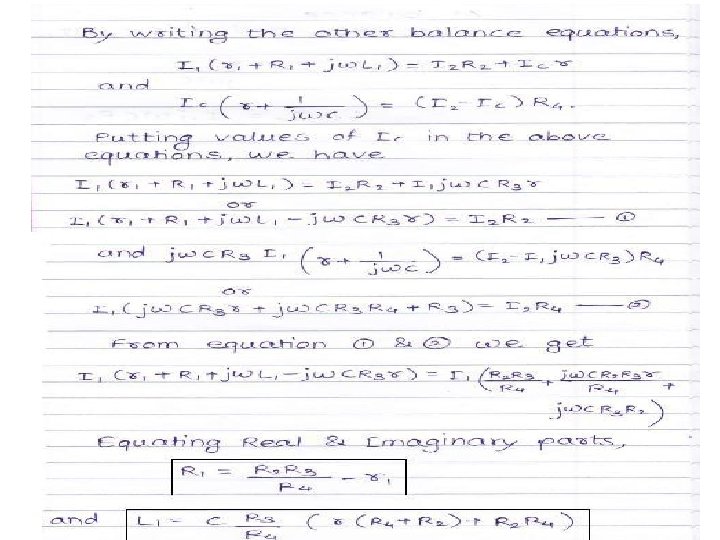 By writing the other balance equations,
I₁(r₁ + R₁ + jωL₁) = I₂R₂ + Icr
and
Ic(r + 1/jωc) = (I₂ - Ic)R₄.
Putting values of Ic in the above
equations, we have
I₁(r₁ + R₁ + jωL₁) = I₂R₂ + I₁jωCR₃r
or
I₁(r₁ + R₁ + jωL₁ - jωCR₃r) = I₂R₂ —— ①
and jωCR₃I₁(r + 1/jωc) = (I₂ - I₁jωCR₃)R₄
or
I₁(jωCR₃r + jωCR₃R₄ + R₃) = I₂R₄ —— ②
From equation ① & ② we get
I₁(r₁ + R₁ + jωL₁ - jωCR₃r) = I₁(R₂R₃/R₄ + jωCR₂R₃r/R₄ +
jωCR₃R₂)
Equating Real & Imaginary parts,
R₁ = R₂R₃/R₄ - r₁
and L₁ = C R₃/R₄ (r(R₄ + R₂) + R₂R₄)